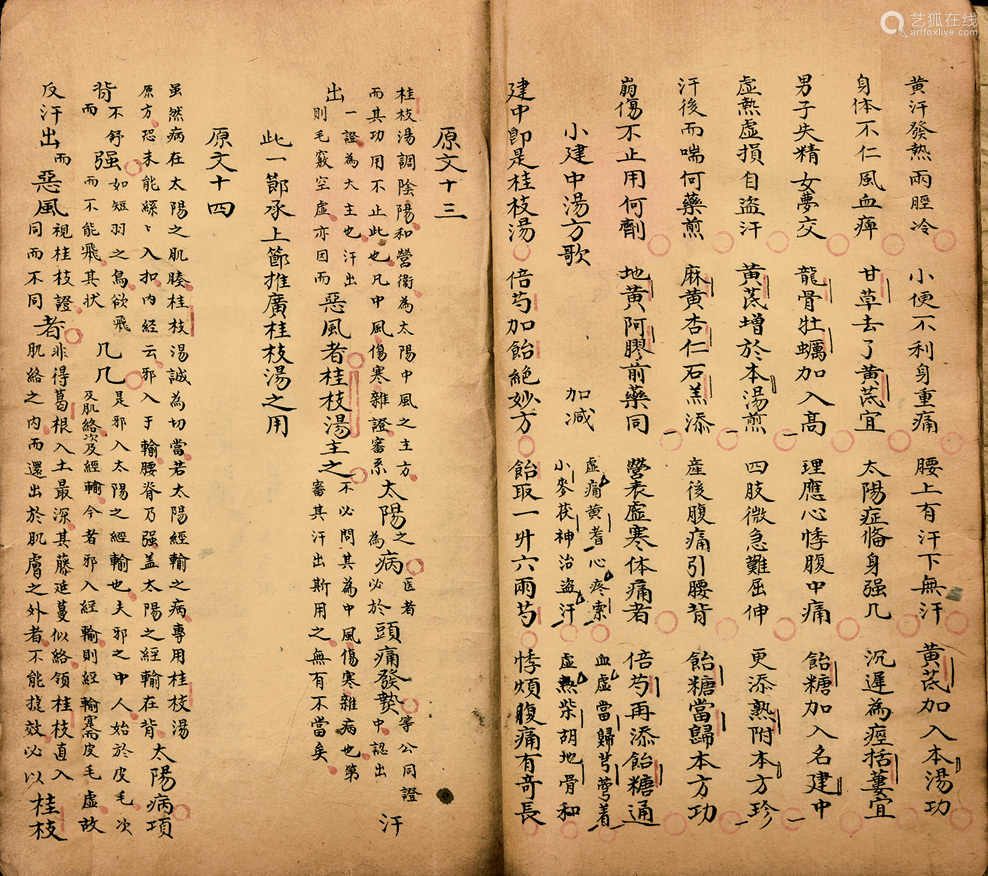 艺狐在线
artfoxlive.com
黄汗發熱兩脛冷 小便不利身重痛 腰上有汗下無汗 黄芪加入本湯功
身体不仁風血痺 甘草去了黄芪宜 太陽症俻身强几 沉遲為痙括蔞宜
男子失精女夢交 龍骨牡蠣加入髙 理應心悸腹中痛 飴糖加入名建中
虚熱虚損自盗汗 黄芪增於本湯煎 四肢微急難屈伸 更添熟附本方珍
汗後而喘何藥煎 麻黄杏仁石羔添 産後腹痛引腰背 飴糖當歸本方功
崩傷不止用何劑 地黄阿膠前藥同 營衰虚寒体痛者 倍芍再添飴糖通
小建中湯方歌 加减 虚痛黄耆心疼索 血虚當歸芎藭着
小麥茯神治盗汗 虚熱柴胡地骨和
建中即是桂枝湯 倍芍加飴絶妙方 飴取一升六兩芍 悸煩腹痛有奇長
原文十三
桂枝湯調陰陽和營衛為太陽中風之主方
而其功用不止此也凡中風傷寒雜證審系太陽之病醫者為必於頭痛發熱等公同證中認出汗
出一證為大主也汗出則毛竅空虚亦因而惡風者桂枝湯主之不必問其為中風傷寒雜病也第審其汗出斯用之無有不當矣
此一節承上節推廣桂枝湯之用
原文十四
雖然病在太陽之肌腠桂枝湯誠為切當若太陽經輸之病專用桂枝湯
原方恐未能絲絲入扣内經云邪入于輸腰脊乃强盖太陽之經輸在背太陽病項
背而不舒强如短羽之鳥欲飛而不能飛其状几几是邪入太陽之經輸也夫邪之中人始於皮毛次及肌絡次及經輸今者邪入經輸則經輸寔而皮毛虚故
反汗出而惡風視桂枝證同而不同者非得葛根入土最深其藤延蔓似絡領桂枝直入肌絡之内而還出於肌膚之外者不能捷效必以桂枝